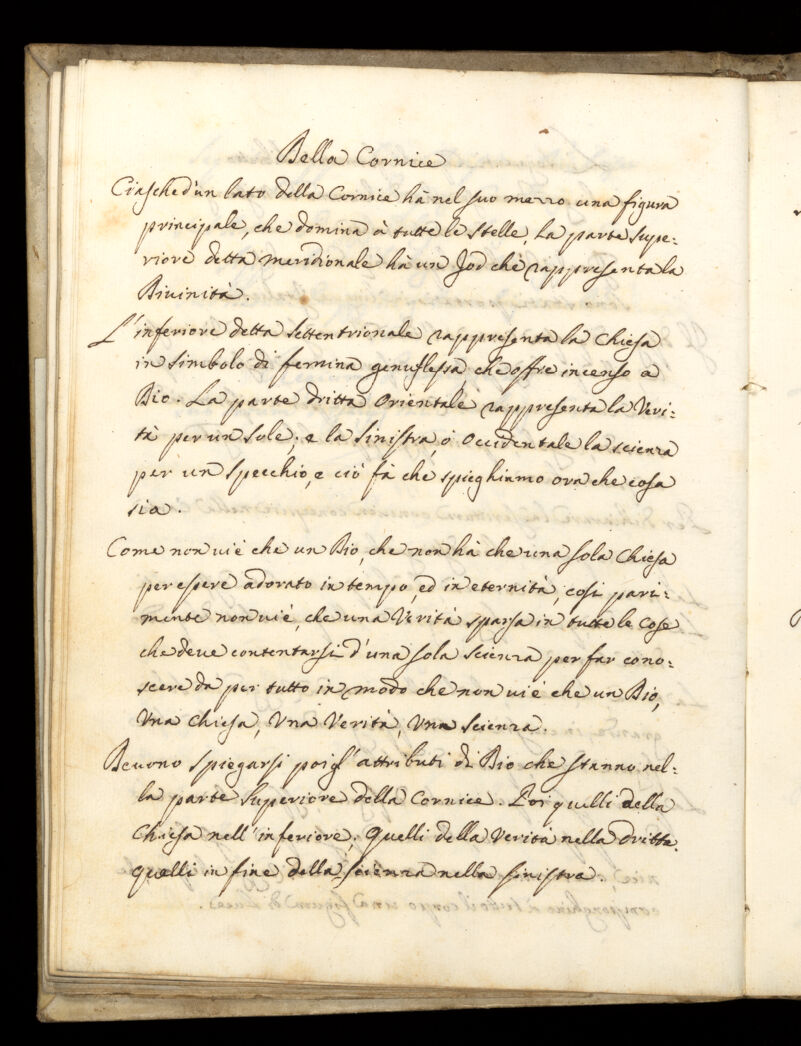 Della Cornice
Ciasched'un lato della Cornice hà nel suo mezzo una figura
principale, che domina à tutte le stelle. La parte supe:
riore detta meridionale hà un Jod che rappresenta la
Divinità.
L'inferiore detta settentrionale rappresenta la Chiesa
in simbolo di femina genuflessa che offre incenso a
Dio. La parte dritta Orientale rappresenta la Veri:
tà per un Sole; e la sinistra, ò Occidentale la scienza
per un specchio, e ciò fà che spieghiamo ora che cosa
sia.
Come non vi è che un Dio, che non hà che una sola Chiesa
per essere adorato in tempo, ed in eternità, così pari:
mente non vi è, che una Verità sparsa in tutte le cose
che deve contentarsi d'una sola scienza per far cono:
scere da per tutto in modo che non vi è che un Dio,
Una Chiesa, Una Verità, Una Scienza.
Devono spiegarsi poi gl'attributi di Dio che stanno nel:
la parte Superiore della Cornice. Poi quelli della
Chiesa nell'inferiore; Quelli della Verità nella dritta.
quelli in fine della scienza nella sinistra.